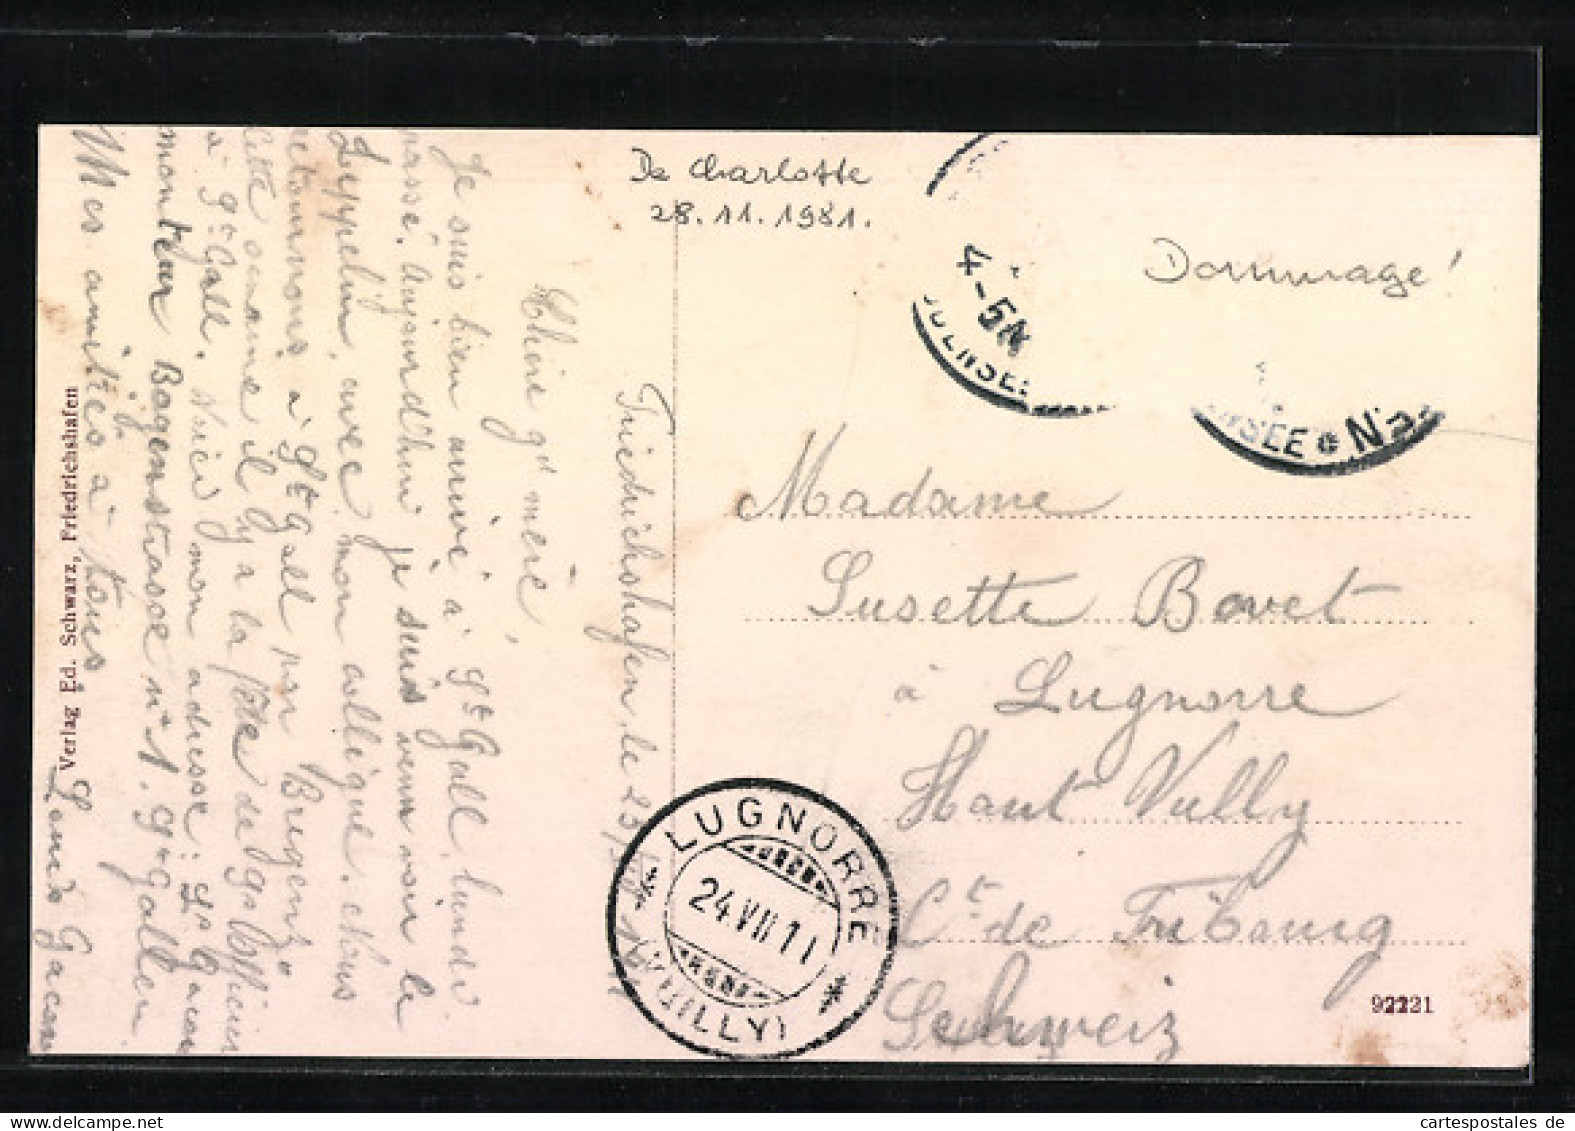 De Charlotte
28.11.1981.
Dommage!
4-5N
BODENSEE
NSEE * N
Friedrichshafen, le 23
Chère gd mère,
Je suis bien arrivé à St Gall, lundi
passé. Aujourd'hui je suis venu voir le
Zeppelin, avec mon collègue. Nous
retournons à St Gall par Bregenz.
Cette semaine il y a la fête de
à St Gall. Voici mon adresse: Ls Gacon
monteur Bogenstrasse n° 1. St Gallen
Mes amitiés à tous.
Louis Gacon
Verlag Ed. Schwarz, Friedrichshafen
Madame
Susette Bovet
à Lugnorre
Haut Vully
Ct. de Fribourg
Schweiz
LUGNORRE
24.VII.11
(VUILLY)
92231
www.cartespostales.de
cartespostales.de